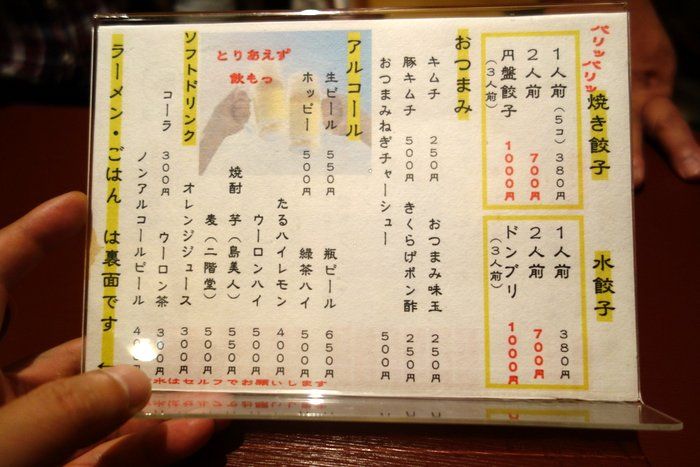 パリッパリッ
焼き餃子
1人前(5コ) 380円
2人前 700円
円盤餃子 1000円
(3人前)
水餃子
1人前 380円
2人前 700円
ドンブリ 1000円
(3人前)
おつまみ
キムチ 250円
おつまみ味玉 250円
豚キムチ 500円
きくらげポン酢 250円
おつまみねぎチャーシュー 500円
アルコール
とりあえず
飲もっ
生ビール 550円
瓶ビール 650円
ホッピー 500円
緑茶ハイ 500円
たるハイレモン 400円
ウーロンハイ 500円
焼酎 芋(島美人) 550円
麦(二階堂) 550円
ソフトドリンク
オレンジジュース 300円
コーラ 300円
ウーロン茶 300円
ノンアルコールビール
水はセルフでお願いします
ラーメン・ごはん は裏面です